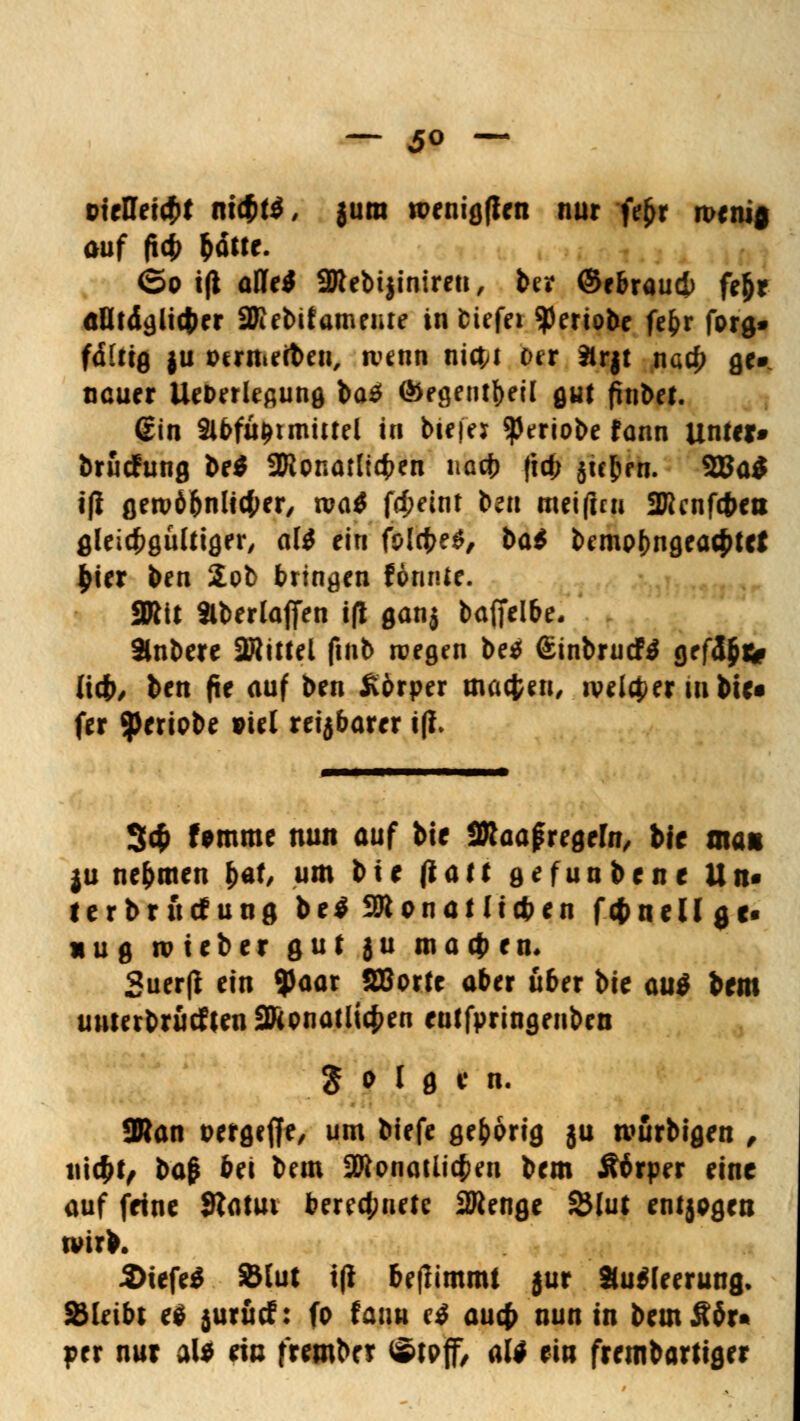 — 50 —
vielleicht nichts, zum wenigsten nur sehr wenig
auf sich hätte.
So ist alles Mediziniren, der Gebrauch sehr
alltäglicher Medikamente in dieser Periode sehr sorg-
fältig zu vermeiden, wenn nicht der Arzt nach ge-
nauer Ueberlegung das Gegentheil gut findet.
Ein Abführmittel in dieser Periode kann Unter-
drückung des Monatlichen nach sich ziehen. Was
ist gewöhnlicher, was scheint den meisten Menschen
gleichgültiger, als ein solches, das demohngeachtet
hier den Tod bringen könnte.
Mit Aderlassen ist ganz dasselbe.
Andere Mittel sind wegen des Eindrucks gefähr-
lich, den sie auf den Körper machen, welcher in die-
ser Periode viel reizbarer ist.
Ich komme nun auf die Maaßregeln, die man
zu nehmen hat, um die statt gefundene Un-
terdrückung des Monatlichen schnell ge-
nug wieder gut zu machen.
Zuerst ein Paar Worte aber über die aus dem
unterdrückten Monatlichen entspringenden
Folgen.
Man vergesse, um diese gehörig zu würdigen ,
nicht, daß bei dem Monatlichen dem Körper eine
auf seine Natur berechnete Menge Blut entzogen
wird.
Dieses Blut ist bestimmt zur Ausleerung.
Bleibt es zurück: so kann es auch nun in dem Kör-
per nur als ein fremder Stoff, als ein fremdartiger